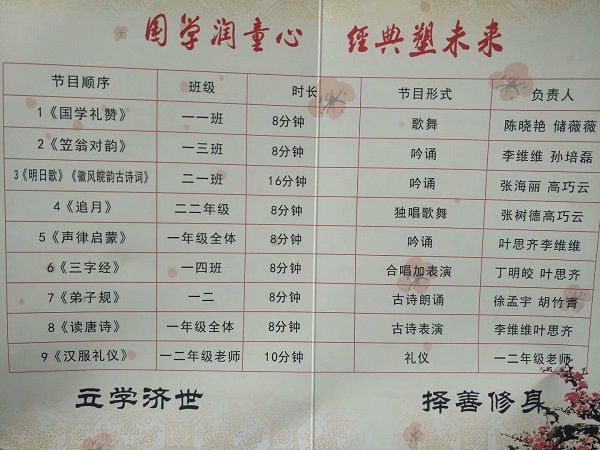 国学润童心 经典塑未来
节目顺序 班级 时长 节目形式 负责人
1《国学礼赞》 一一班 8分钟 歌舞 陈晓艳 储薇薇
2《笠翁对韵》 一三班 8分钟 吟诵 李维维 孙培磊
3《明日歌》《徽风皖韵古诗词》 二一班 16分钟 吟诵 张海丽 高巧云
4《追月》 二二年级 8分钟 独唱歌舞 张树德高巧云
5《声律启蒙》 一年级全体 8分钟 吟诵 叶思齐李维维
6《三字经》 一四班 8分钟 合唱加表演 丁明皎 叶思齐
7《弟子规》 一二 8分钟 古诗朗诵 徐孟宇 胡竹青
8《读唐诗》 一年级全体 8分钟 古诗表演 李维维叶思齐
9《汉服礼仪》 一二年级老师 10分钟 礼仪 一二年级老师
立学济世 择善修身